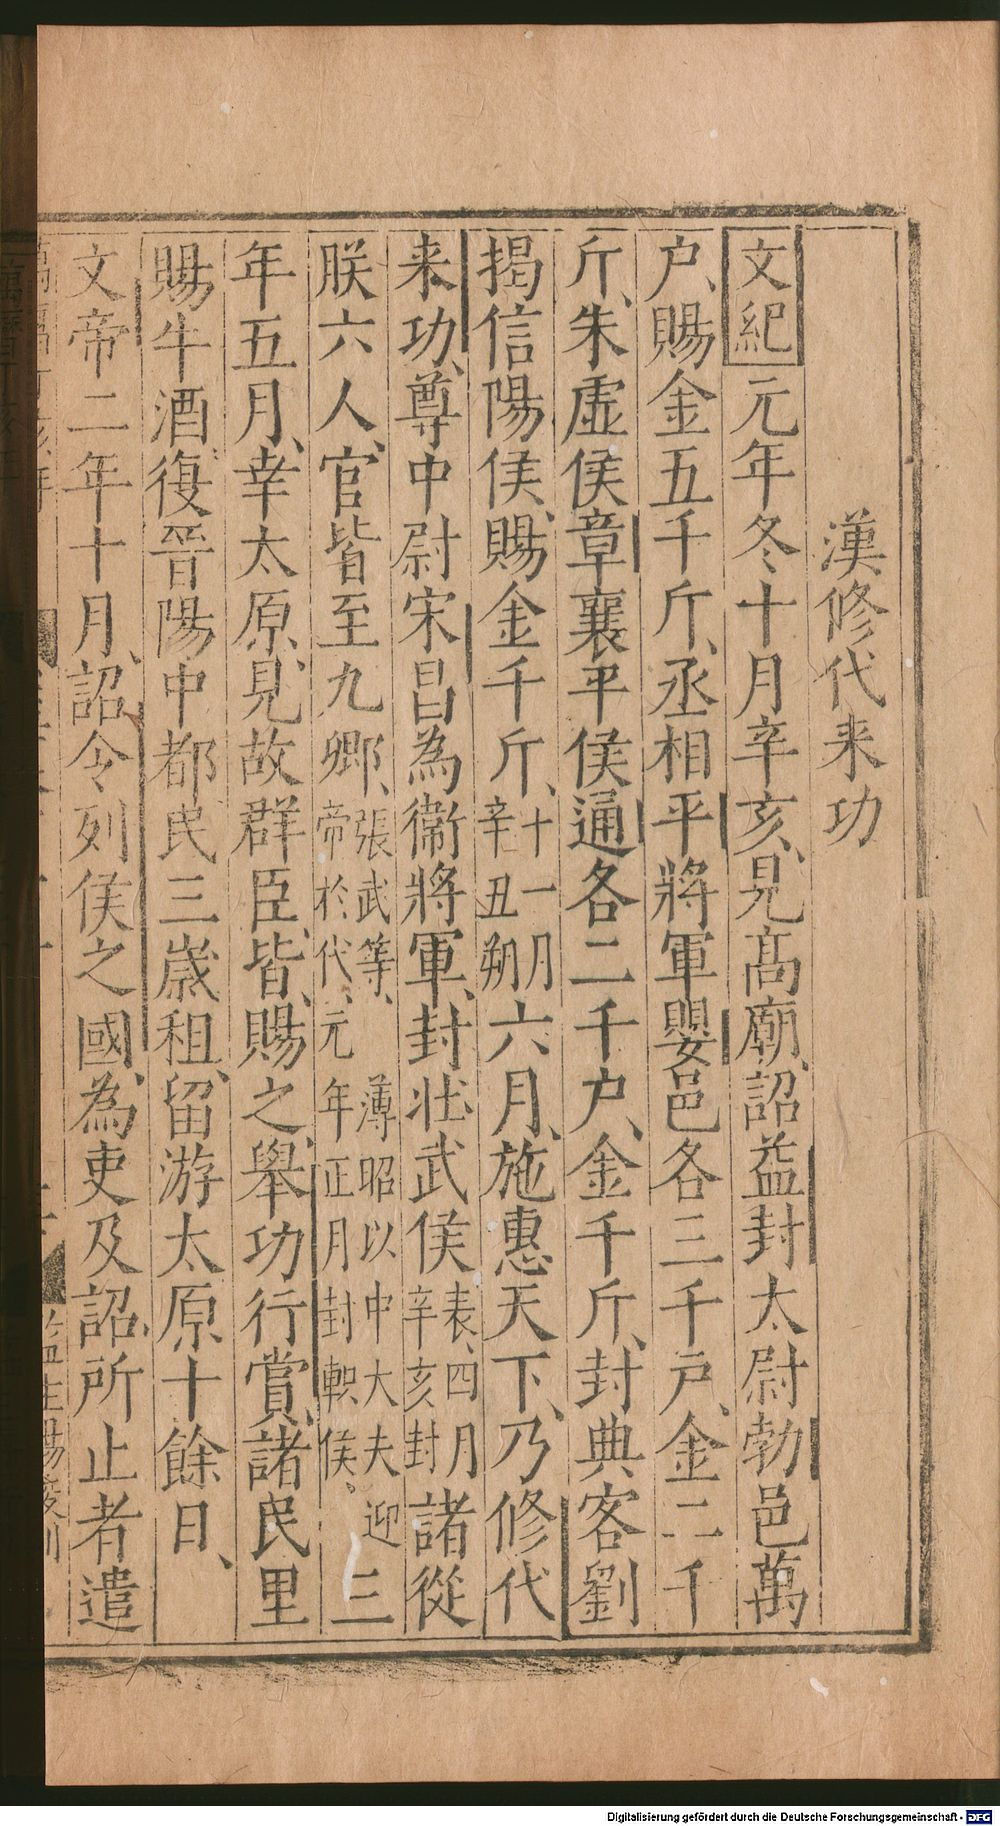 漢修代来功
文紀元年冬十月辛亥見髙廟詔益封太尉勃邑萬
户賜金五千斤丞相平將軍嬰邑各三千户金二千
斤朱虚侯章襄平侯通各二千户金千斤封典客劉
揭信陽侯賜金千斤十一月辛丑朔六月施惠天下乃修代
来功尊中尉宋昌為衞將軍封壮武侯表四月辛亥封諸從
朕六人官皆至九卿張武等帝於代元薄昭以中大夫迎年正月封軹侯三
年五月幸太原見故群臣皆賜之舉功行賞諸民里
賜牛酒復晉陽中都民三歳租留游太原十餘日
文帝二年十月詔令列侯之國為吏及詔所止者遣
Digitalisierung gefördert durch die Deutsche Forschungsgemeinschaft - DFG